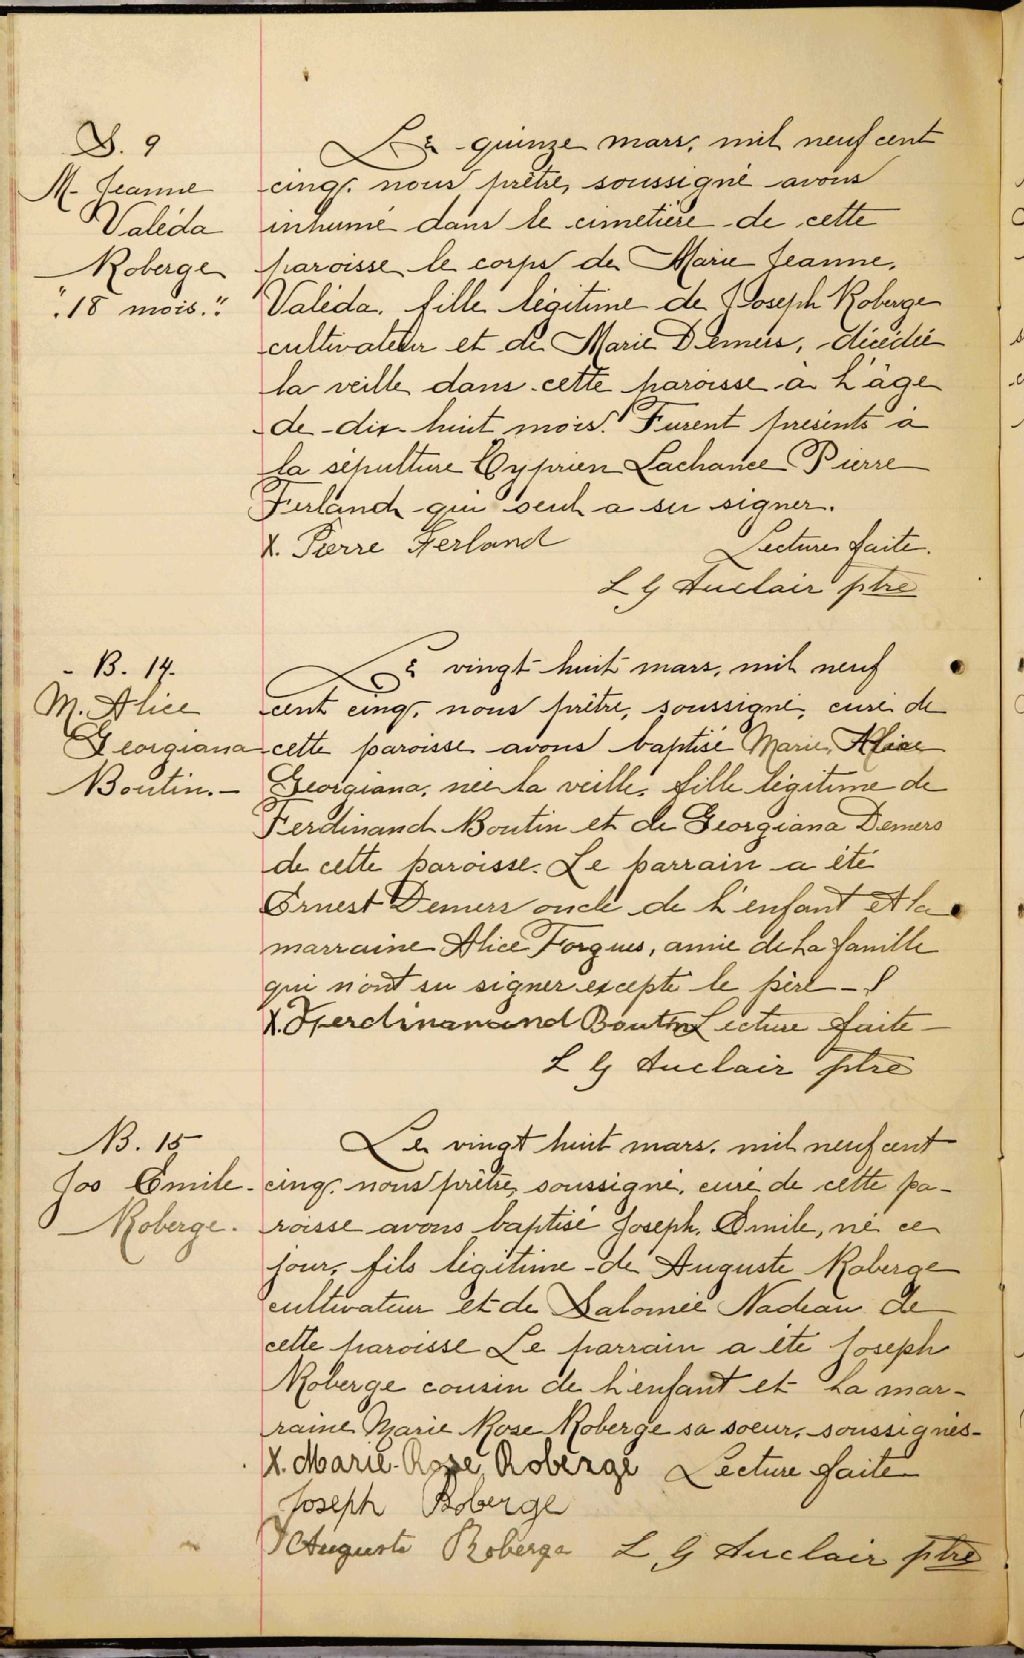 S. 9
M. Jeanne
Valéda
Roberge
"18 mois."
Le quinze mars, mil neuf cent
cinq, nous prêtre, soussigné avons
inhumé dans le cimetière de cette
paroisse le corps de Marie Jeanne,
Valéda, fille légitime de Joseph Roberge
cultivateur et de Marie Demers, décédée
la veille dans cette paroisse à l'âge
de dix huit mois. Furent présents à
la sépulture Cyprien Lachance Pierre
Ferland qui seul a su signer.
X. Pierre Ferland Lecture faite.
L G Auclair ptre
- B. 14.
M. Alice
Georgiana
Boutin. -
Le vingt huit mars, mil neuf
cent cinq, nous prêtre, soussigné, curé de
cette paroisse avons baptisé Marie, Alice
Georgiana, née la veille, fille légitime de
Ferdinand Boutin et de Georgiana Demers
de cette paroisse. Le parrain a été
Ernest Demers oncle de l'enfant et la
marraine Alice Forgues, amie de la famille
qui n'ont su signer excepté le père -
X. Ferdinanand Boutin Lecture faite -
L G Auclair ptre
B. 15
Jos Emile
Roberge.
Le vingt huit mars, mil neuf cent
cinq, nous prêtre, soussigné, curé de cette pa-
roisse avons baptisé Joseph, Emile, né ce
jour, fils légitime de Auguste Roberge
cultivateur et de Salomée Nadeau de
cette paroisse Le parrain a été Joseph
Roberge cousin de l'enfant et la mar-
raine Marie Rose Roberge sa soeur, soussignés -
X. Marie-Rose Roberge Lecture faite
Joseph Roberge
X Auguste Roberge L G Auclair ptre